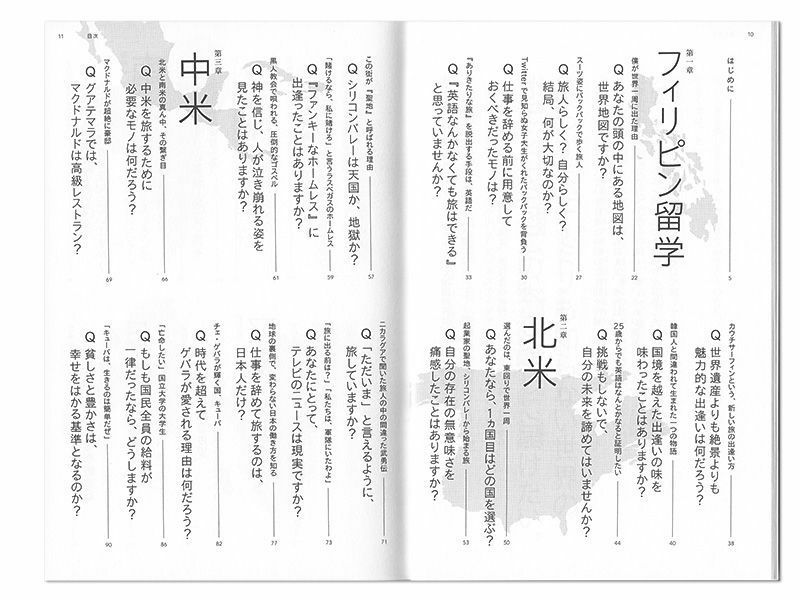 10
はじめに
5
第一章
フィリピン留学
僕が世界一周に出た理由
Q あなたの頭の中にある地図は、
世界地図ですか?
22
スーツ姿にバックパックで歩く旅人
Q 旅人らしく?自分らしく?
結局、何が大切なのか?
27
Twitterで見知らぬ女子大生がくれたバックパックを背負う
Q 仕事を辞める前に用意して
おくべきだったモノは?
30
『ありきたりな旅』を脱出する手段は、英語だ
Q 『英語なんかなくても旅はできる』
と思っていませんか?
33
カウチサーフィンという、新しい旅の出逢い方
Q 世界遺産よりも絶景よりも
魅力的な出逢いは何だろう?
38
韓国人と間違われて生まれた一つの物語
Q 国境を越えた出逢いの味を
味わったことはありますか?
40
25歳からでも英語はなんとかなると証明したい
Q 挑戦もしないで、
自分の未来を諦めてはいませんか?
44
第二章
北米
選んだのは、東回りで世界一周
Q あなたなら、1ヵ国目はどの国を選ぶ?
50
起業家の聖地、シリコンバレーから始まる旅
Q 自分の存在の無意味さを
痛感したことはありますか?
53
11
目次
この街が『聖地』と呼ばれる理由
Q シリコンバレーは天国か、地獄か?
57
「賭けるなら、私に賭けろ」と言うラスベガスのホームレス
Q 『ファンキーなホームレス』に
出逢ったことはありますか?
59
黒人教会で唄われる、圧倒的なゴスペル
Q 神を信じ、人が泣き崩れる姿を
見たことはありますか?
61
第三章
中米
北米と南米の真ん中、その繋ぎ目
Q 中米を旅するために
必要なモノは何だろう?
66
マクドナルドが超絶に豪邸
Q グアテマラでは、
マクドナルドは高級レストラン?
69
ニカラグアで聞いた旅人の中の間違った武勇伝
Q 「ただいま」と言えるように、
旅していますか?
71
「旅に出る前は?」「私たちは、軍隊にいたわよ」
Q あなたにとって、
テレビのニュースは現実ですか?
73
地球の裏側で、変わらない日本の働き方を知る
Q 仕事を辞めて旅するのは、
日本人だけ?
77
チェ・ゲバラが輝く国、キューバ
Q 時代を超えて
ゲバラが愛される理由は何だろう?
82
「亡命したい」国立大学の大学生
Q もしも国民全員の給料が
一律だったなら、どうしますか?
86
「キューバは、生きるのは簡単だぜ」
Q 貧しさと豊かさは、
幸せをはかる基準となるのか?
90